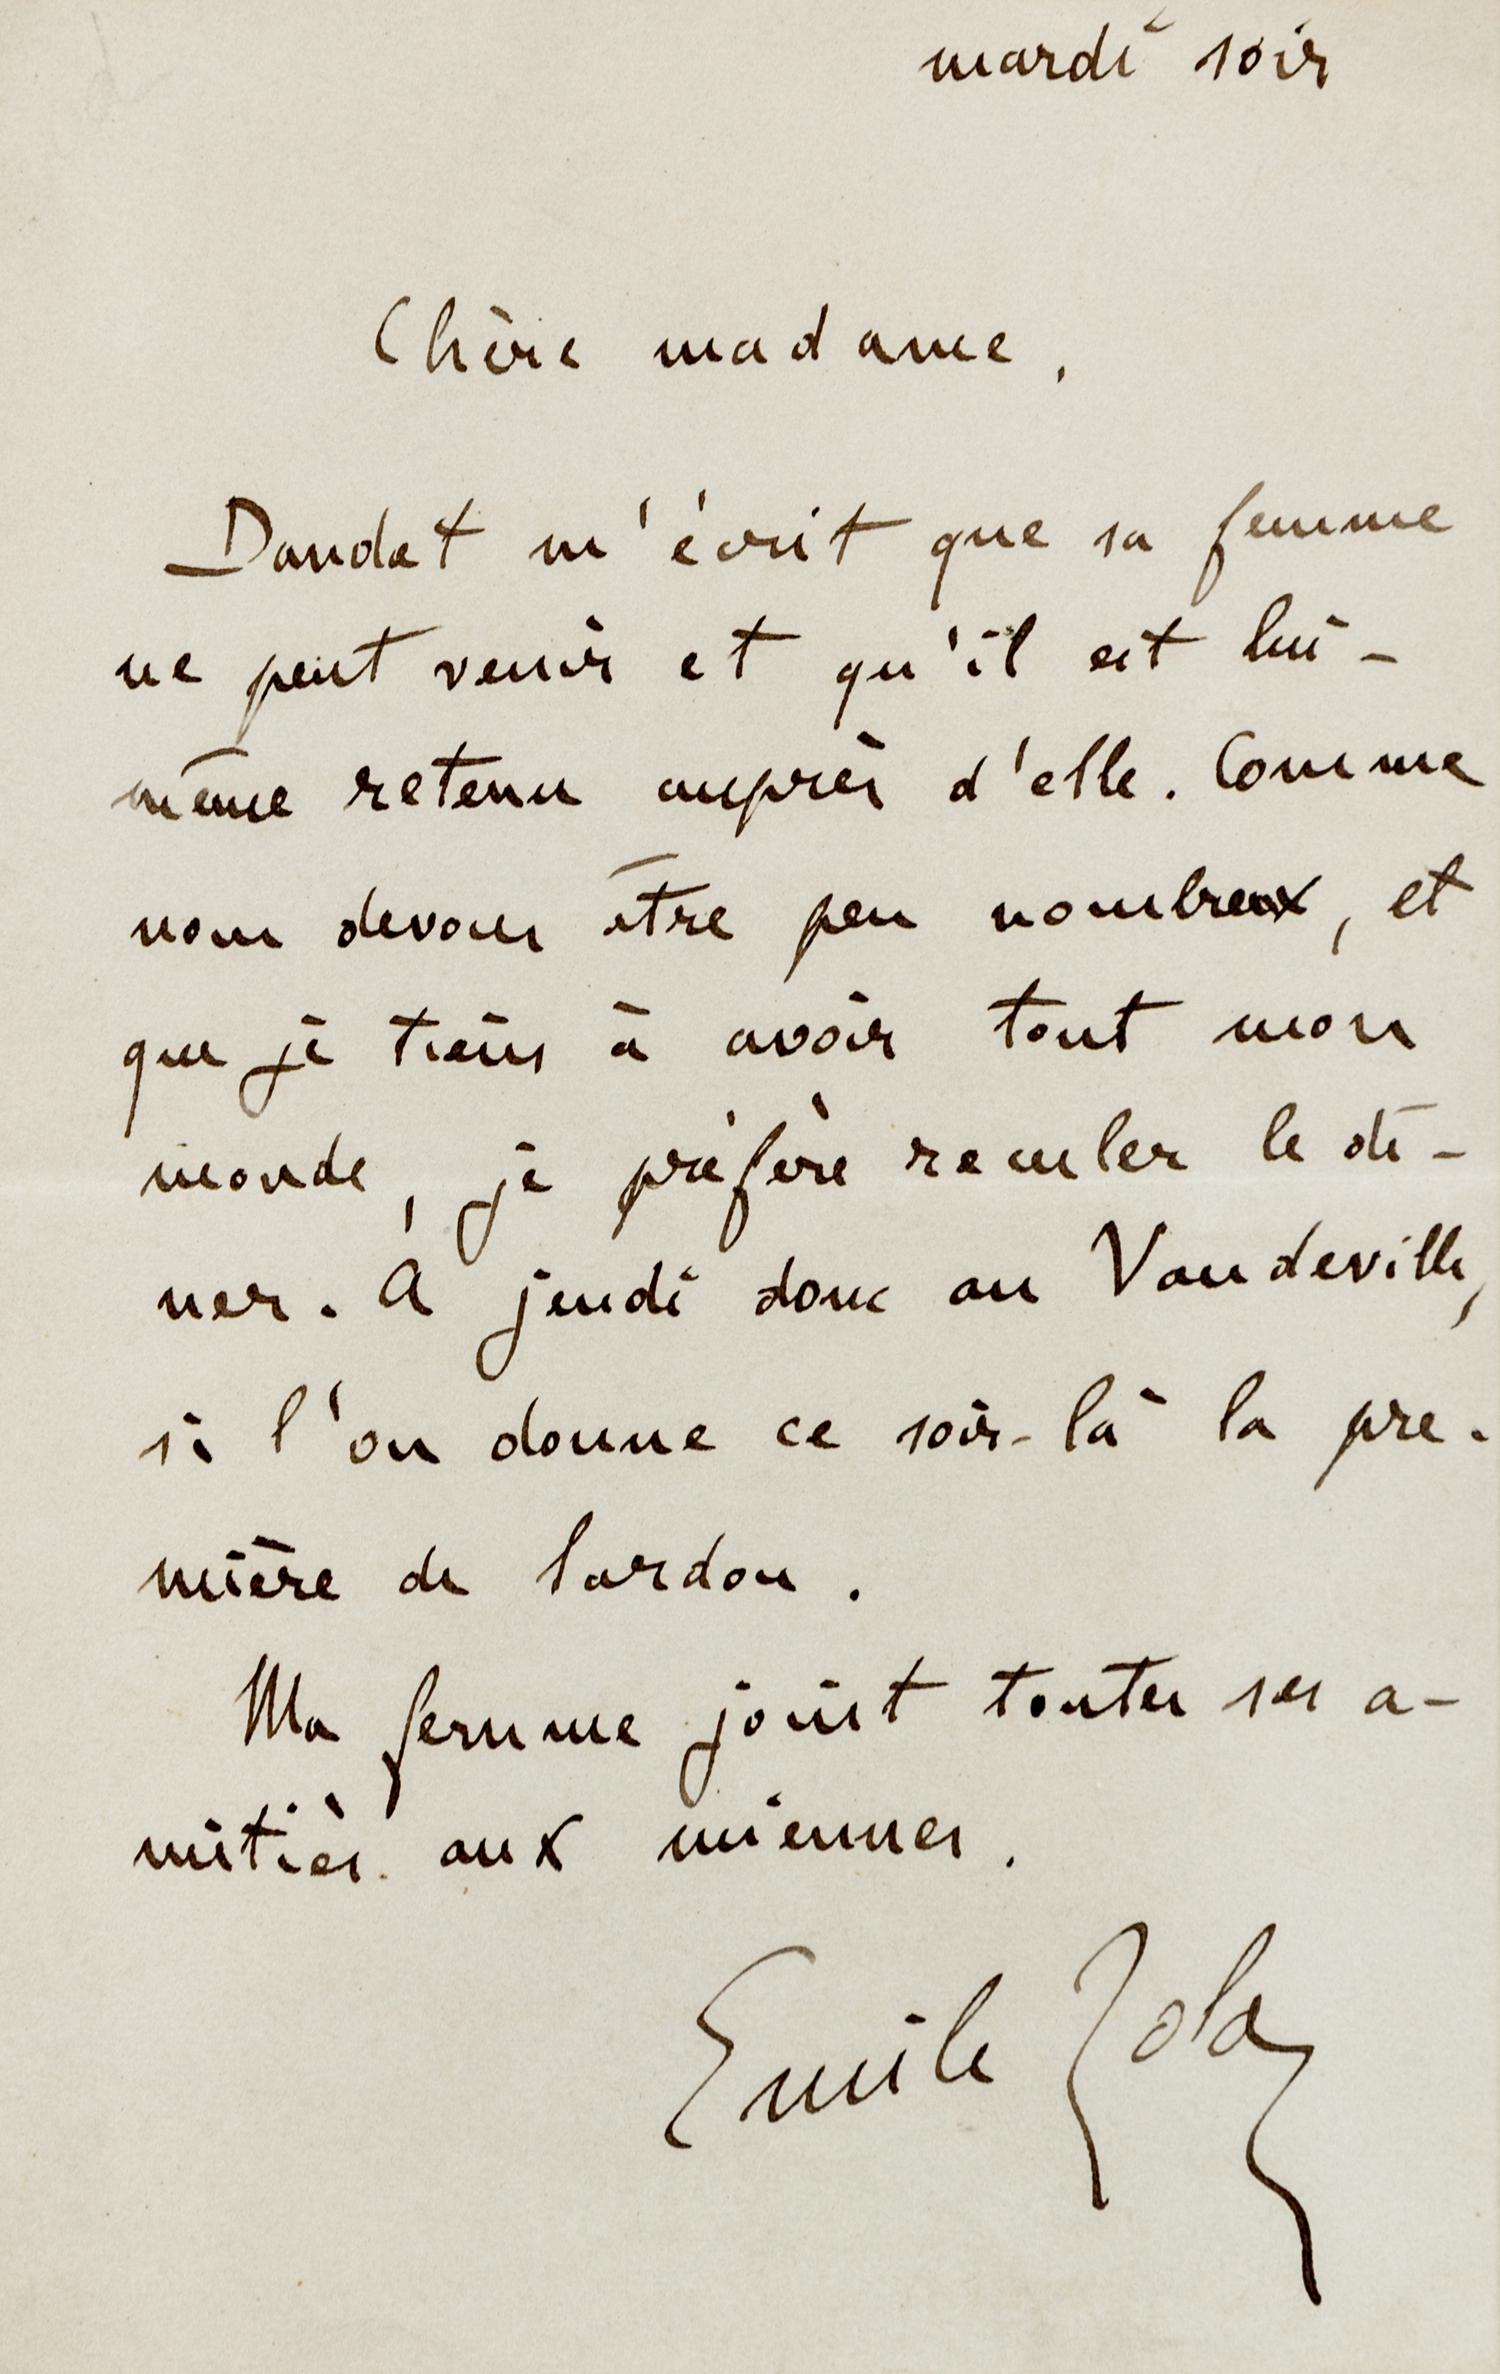 mardi soir
Chère madame,
Daudet m'écrit que sa femme
ne peut venir et qu'il est lui-
même retenu auprès d'elle. Comme
nous devons être peu nombreux, et
que je tiens à avoir tout mon
monde, je préfère reculer le dî-
ner. À jeudi donc au Vaudeville,
si l'on donne ce soir-là la pre-
mière de Sardou.
Ma femme joint toutes ses a-
mitiés aux miennes.
Emile Zola